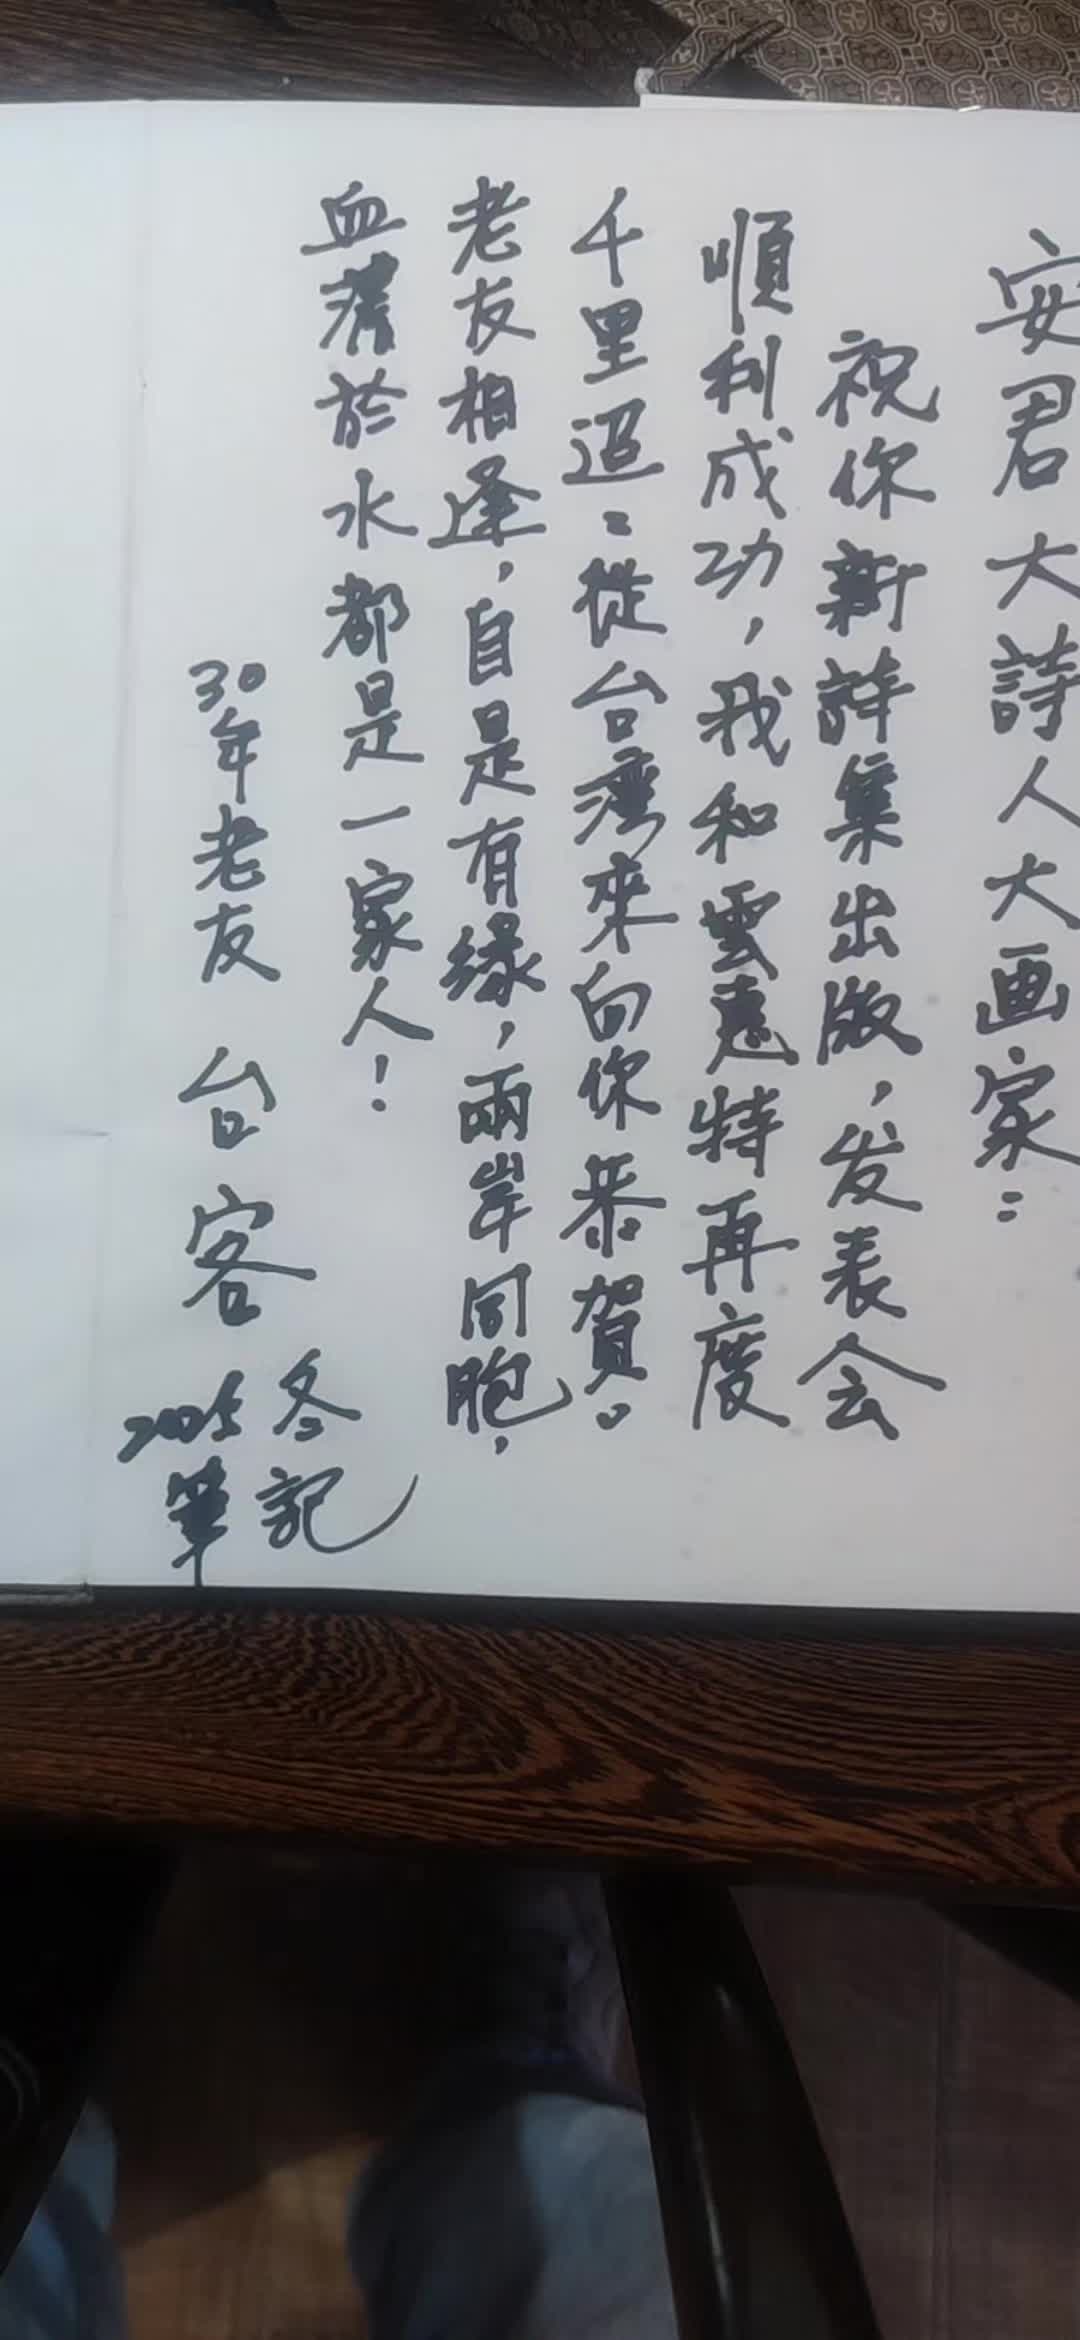 安君大詩人大画家：
祝你新詩集出版，发表会
順利成功，我和雲惠特再度
千里迢迢從台灣來向你恭賀。
老友相逢，自是有緣，兩岸同胞，
血濃於水都是一家人！
30年老友 台客
2025冬
筆記